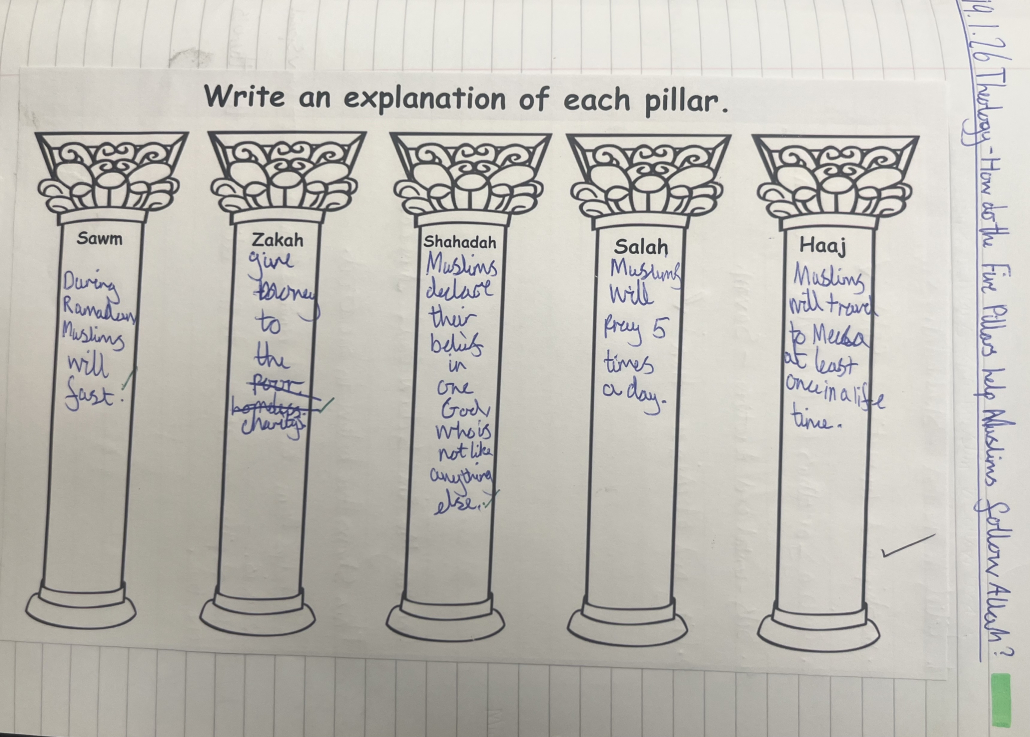 Write an explanation of each pillar.
Sawm
During
Ramadan
Muslims
will
fast.
Zakah
give
money
to
the
poor
charity.
Shahadah
Muslims
declare
their
beliefs
in
one
God,
who is
not like
anything
else.
Salah
Muslims
will
Pray 5
times
a day.
Haaj
Muslims
will travel
to Mecca
at least
once in a life
time.
19.1.26 Theology - How do the Five Pillars help Muslims follow Allah?